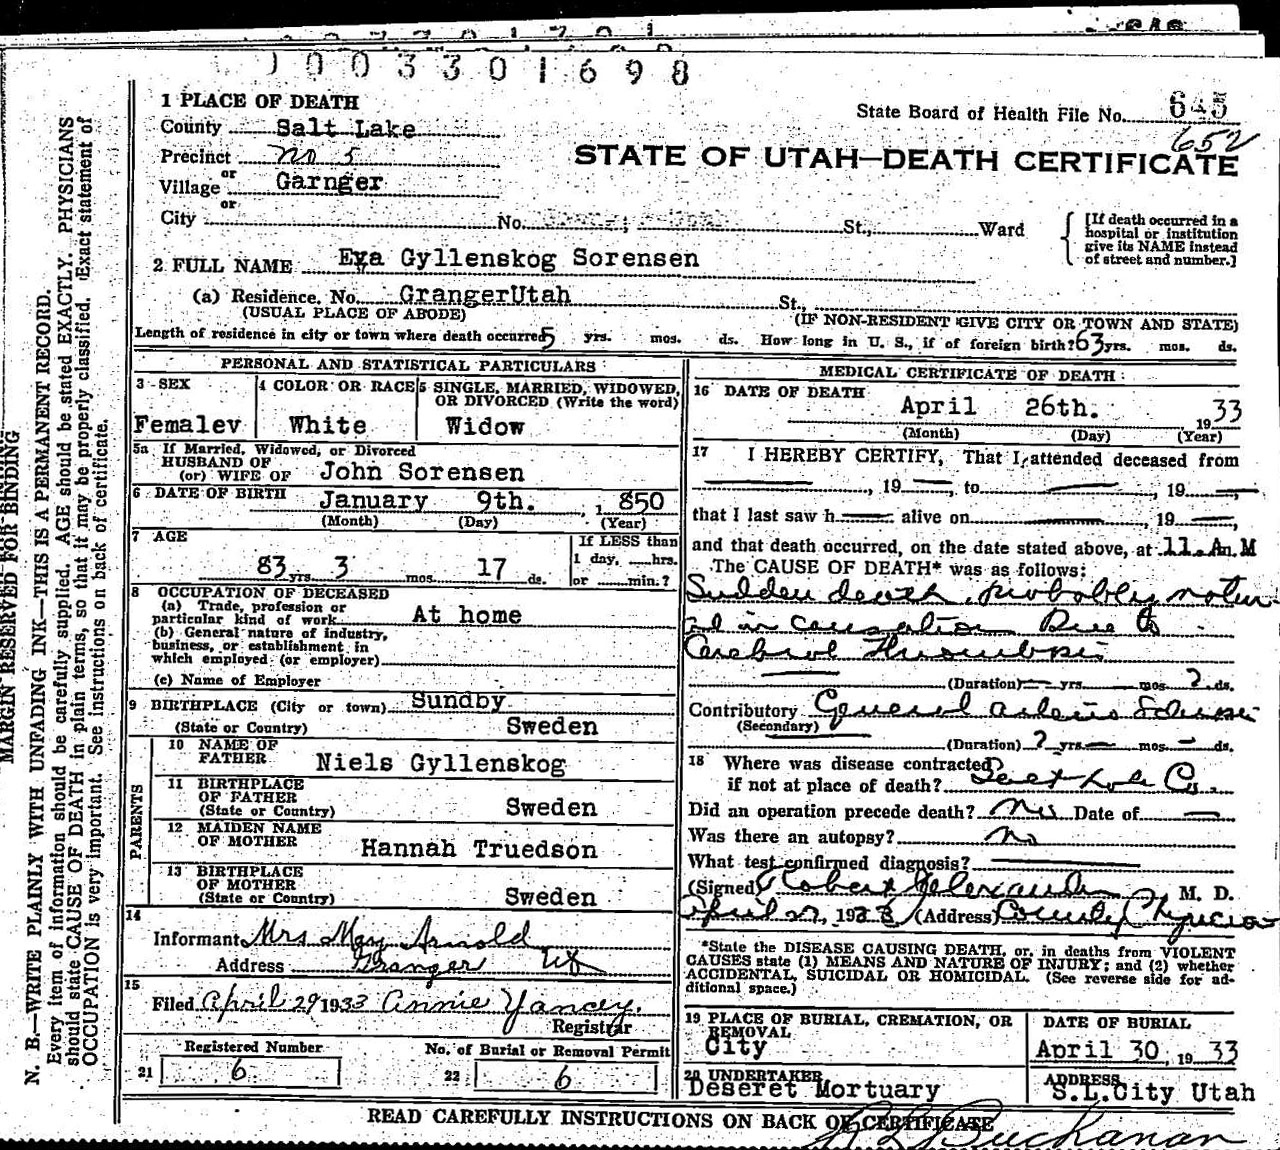 1003301698
1 PLACE OF DEATH
State Board of Health File No. 645
652
County Salt Lake
Precinct No 5
STATE OF UTAH—DEATH CERTIFICATE
or
Village Garnger
or
City No. St., Ward
[If death occurred in a
hospital or institution
give its NAME instead
of street and number.]
2 FULL NAME Eva Gyllenskog Sorensen
(a) Residence. No. GrangerUtah St.,
(USUAL PLACE OF ABODE) (IF NON-RESIDENT GIVE CITY OR TOWN AND STATE)
Length of residence in city or town where death occurred 5 yrs. mos. ds. How long in U. S., if of foreign birth? 63 yrs. mos. ds.
PERSONAL AND STATISTICAL PARTICULARS
3 SEX
Female
4 COLOR OR RACE
White
5 SINGLE, MARRIED, WIDOWED,
OR DIVORCED (Write the word)
Widow
5a If Married, Widowed, or Divorced
HUSBAND OF
(or) WIFE OF John Sorensen
6 DATE OF BIRTH January 9th. , 1850
(Month) (Day) (Year)
7 AGE
83 yrs. 3 mos. 17 ds.
If LESS than
1 day, hrs.
or min.?
8 OCCUPATION OF DECEASED
(a) Trade, profession or
particular kind of work At home
(b) General nature of industry,
business, or establishment in
which employed (or employer)
(c) Name of Employer
9 BIRTHPLACE (City or town) Sundby
(State or Country) Sweden
PARENTS
10 NAME OF
FATHER Niels Gyllenskog
11 BIRTHPLACE
OF FATHER
(State or Country) Sweden
12 MAIDEN NAME
OF MOTHER Hannah Truedson
13 BIRTHPLACE
OF MOTHER
(State or Country) Sweden
14
Informant Mrs May Arnold
Address Granger Ut
15
Filed April 29 1933 Annie Yancey.
Registrar
Registered Number
21 6
No. of Burial or Removal Permit
22 6
MEDICAL CERTIFICATE OF DEATH
16 DATE OF DEATH
April 26th. 1933
(Month) (Day) (Year)
17 I HEREBY CERTIFY, That I attended deceased from
, 19 , to , 19 ,
that I last saw h alive on , 19 ,
and that death occurred, on the date stated above, at 11.A.M
The CAUSE OF DEATH* was as follows:
Sudden death, probably natur
al in causation Due to
Cerebral Thrombosis
(Duration) yrs. mos. ? ds.
Contributory General arterio Sclerosis
(Secondary)
(Duration) ? yrs. mos. ds.
18 Where was disease contracted
if not at place of death? Salt Lake Co.
Did an operation precede death? No Date of
Was there an autopsy? No
What test confirmed diagnosis?
(Signed) Robert Alexander M. D.
April 27, 1933 (Address) County Physician
*State the DISEASE CAUSING DEATH, or, in deaths from VIOLENT
CAUSES state (1) MEANS AND NATURE OF INJURY; and (2) whether
ACCIDENTAL, SUICIDAL OR HOMICIDAL. (See reverse side for ad-
ditional space.)
19 PLACE OF BURIAL, CREMATION, OR
REMOVAL
City
DATE OF BURIAL
April 30, 1933
20 UNDERTAKER
Deseret Mortuary
ADDRESS
S.L.City Utah
READ CAREFULLY INSTRUCTIONS ON BACK OF CERTIFICATE
Buchanan
MARGIN RESERVED FOR BINDING
N. B.—WRITE PLAINLY WITH UNFADING INK—THIS IS A PERMANENT RECORD.
Every item of information should be carefully supplied. AGE should be stated EXACTLY. PHYSICIANS
should state CAUSE OF DEATH in plain terms, so that it may be properly classified. Exact statement of
OCCUPATION is very important. See instructions on back of certificate.